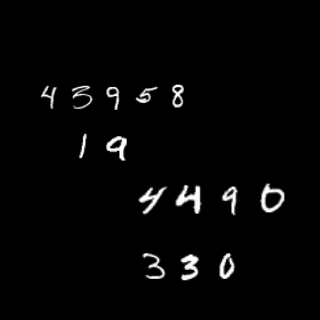 43958
19
4490
330